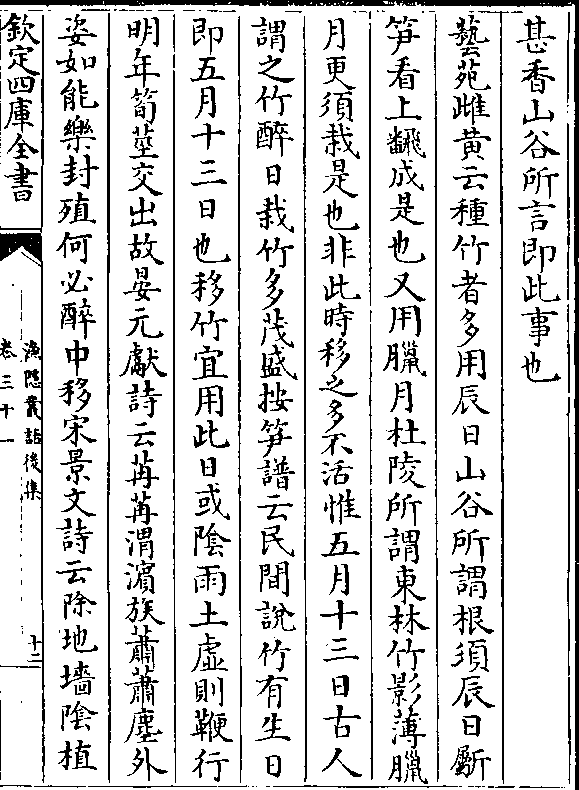 甚香山谷所言即此事也
藝苑雌黄云種竹者多用辰日山谷所謂根須辰日斸
筍看上番成是也又用臘月杜陵所謂東林竹影薄臘
月更須栽是也非此時移之多不活惟五月十三日古人
謂之竹醉日栽竹多茂盛按筍譜云民間說竹有生日
即五月十三日也移竹宜用此日或陰雨土虛則鞭行
明年筍莖交出故晏元獻詩云苒苒渭濱族蕭蕭塵外
姿如能樂封殖何必醉中移宋景文詩云除地墻陰植
欽定四庫全書
漁隱叢話後集
卷三十一
十二